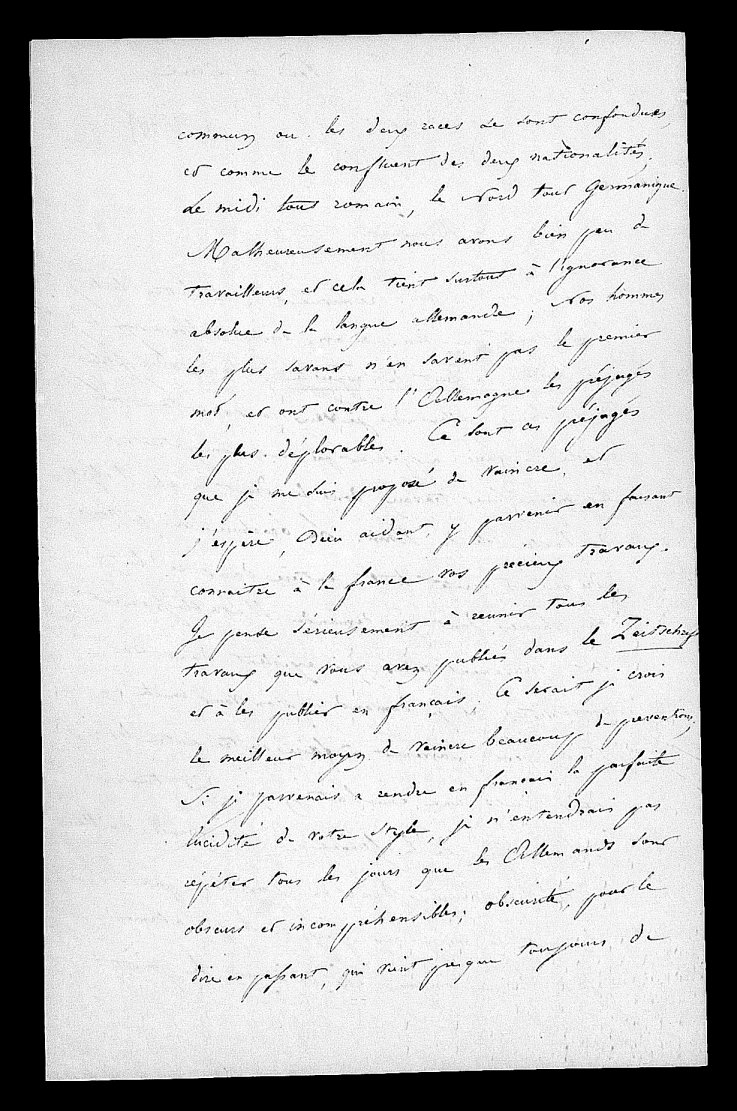 commun où les deux races se sont confondues,
et comme le confluent des deux nationalités.
Le midi tout romain, le Nord tout Germanique.
Malheureusement nous avons bien peu de
travailleurs, et cela tient surtout à l'ignorance
absolue de la langue allemande ; Nos hommes
les plus savans n'en savent pas le premier
mot, et ont contre l'Allemagne les préjugés
les plus déplorables. Ce sont ces préjugés
que je me suis proposé de vaincre, et
j'espère, Dieu aidant, y parvenir en faisant
connaitre à la france vos précieux travaux.
Je pense sérieusement à reunir tous les
travaux que vous avez publiés dans le Zeitschrift
et à les publier en français. Ce serait je crois
le meilleur moyen de vaincre beaucoup de preventions,
Si je parvenais a rendre en français la parfaite
lucidité de votre style, je n'entendrais pas
répéter tous les jours que les Allemands sont
obscurs et incompréhensibles; obscurité, pour le
dire en passant, qui vient presque toujours de